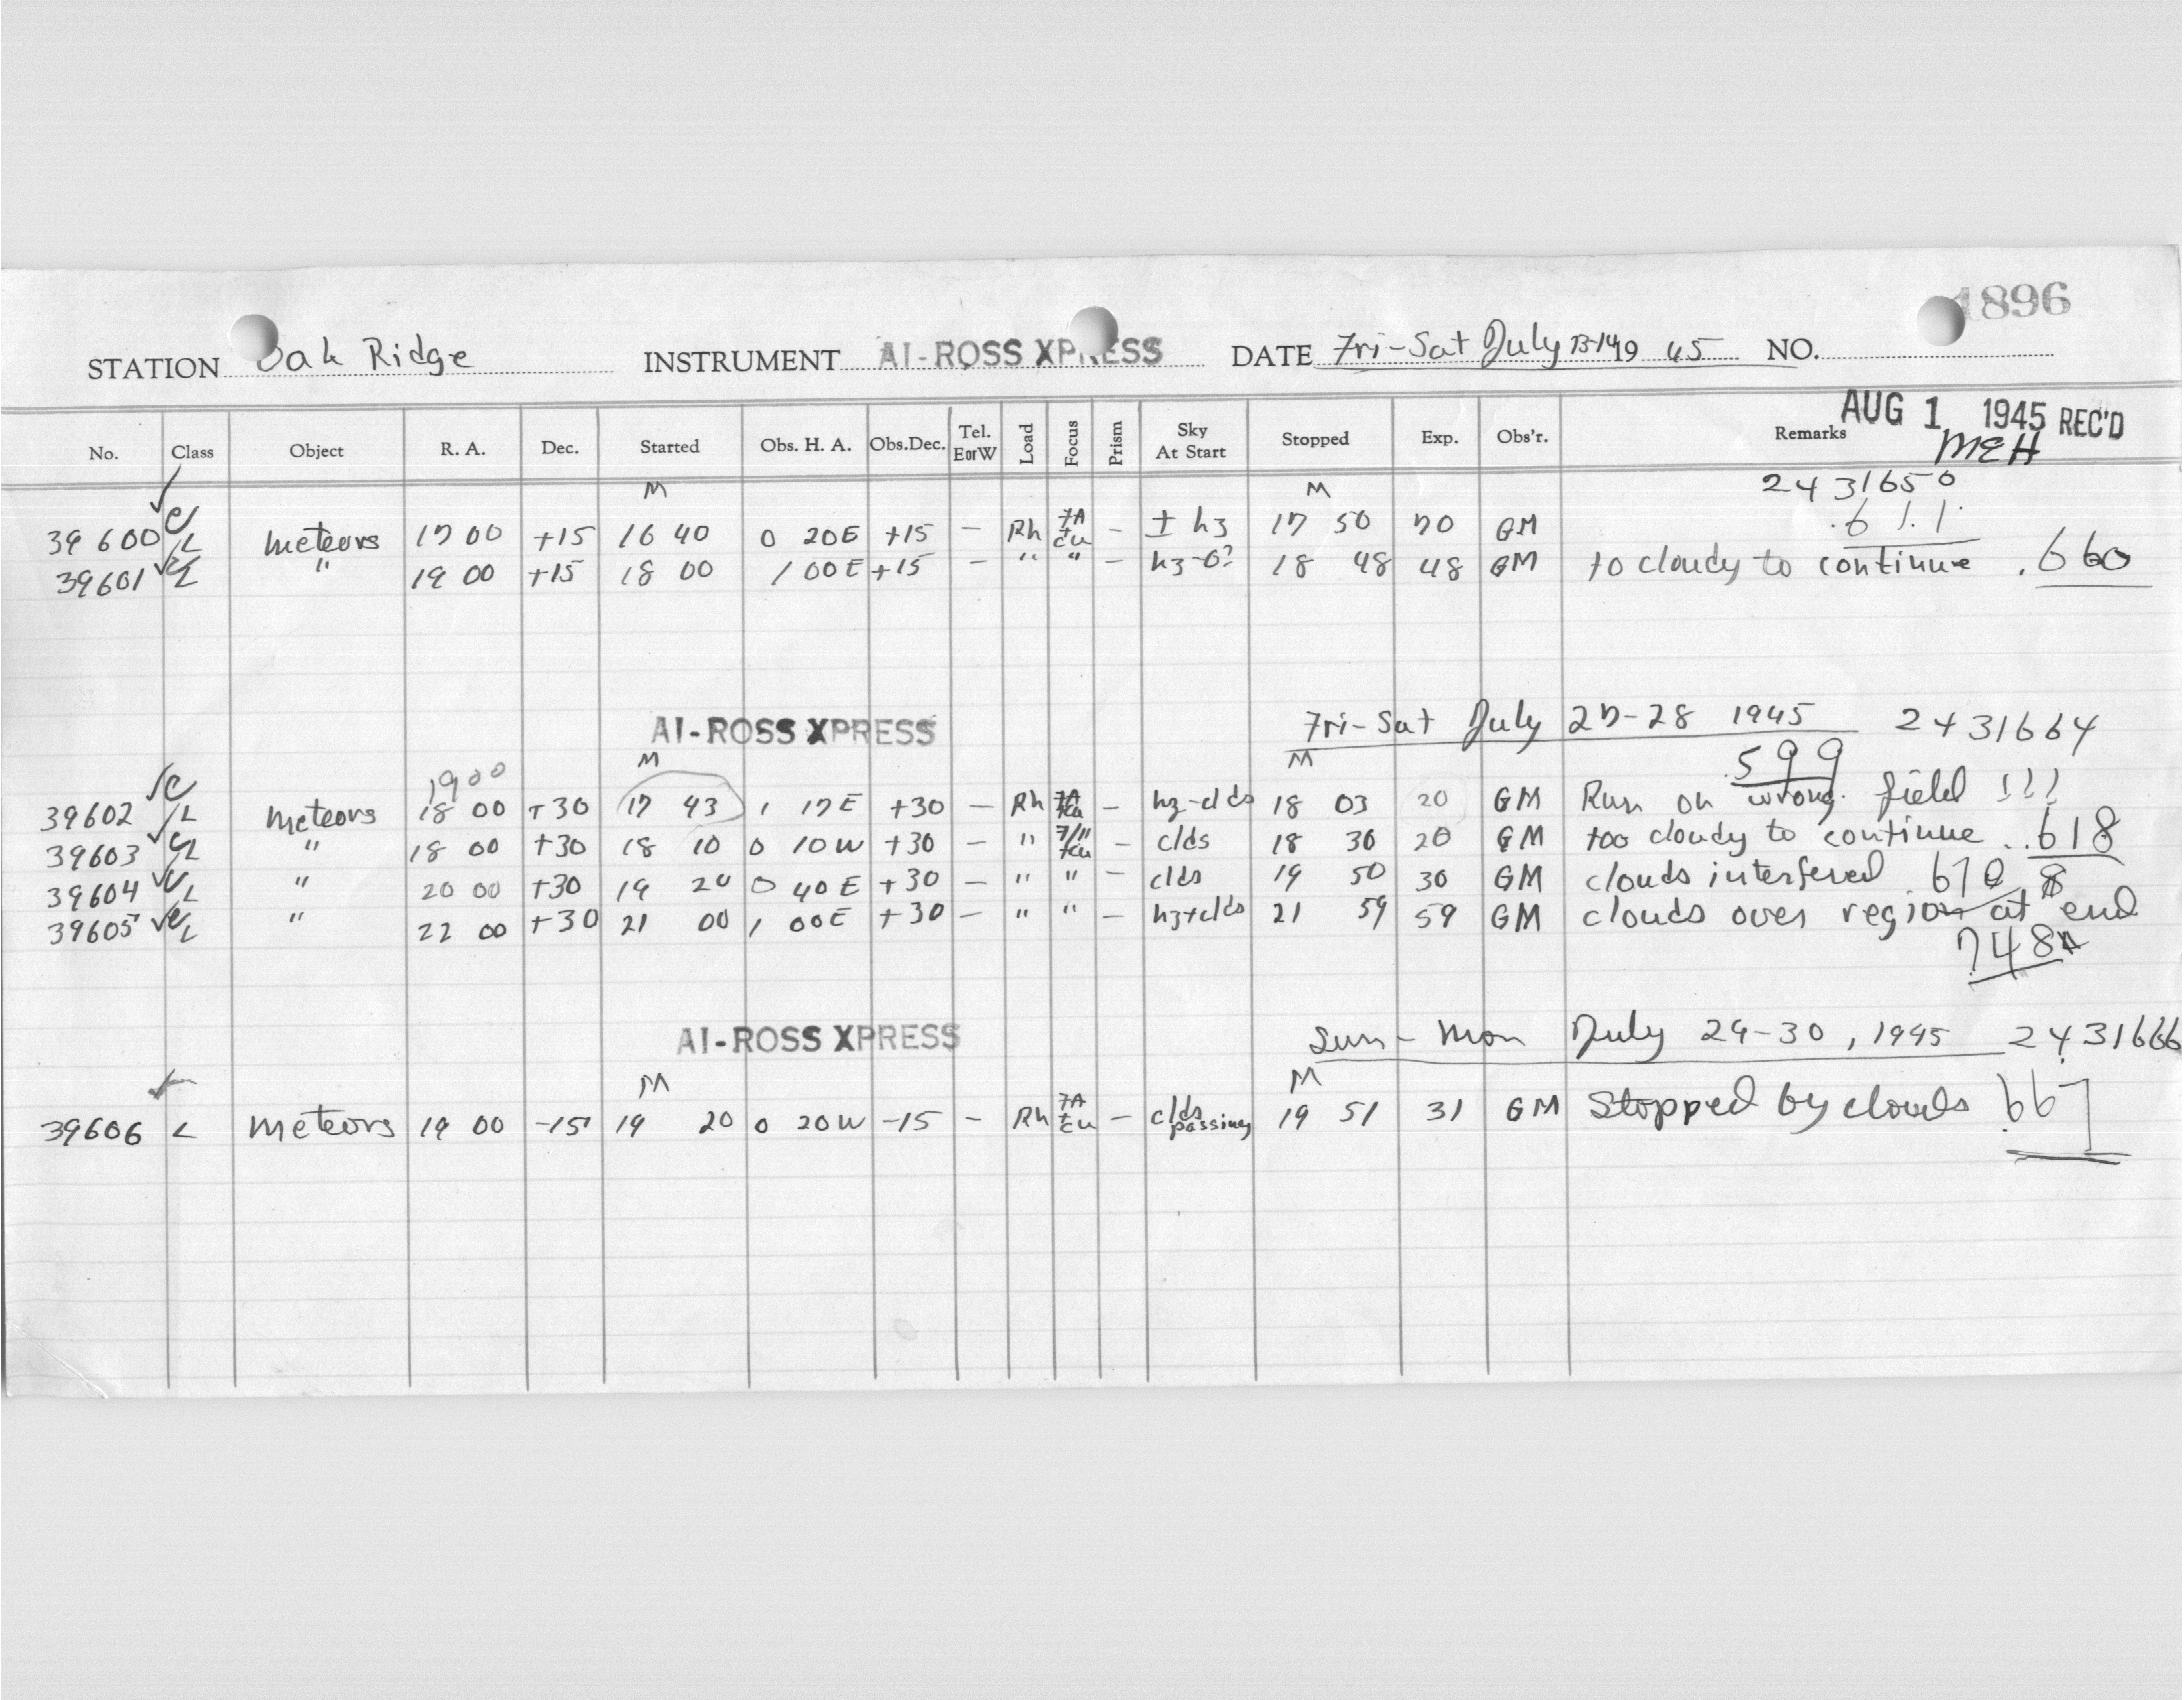 1896
STATION Oak Ridge INSTRUMENT AI-ROSS XPRESS DATE Fri-Sat July 13-14 19 45 NO.
AUG 1 1945 REC'D
No. Class Object R. A. Dec. Started Obs. H. A. Obs.Dec. Tel. E or W Load Focus Prism Sky At Start Stopped Exp. Obs'r. Remarks
MEH
M M 2431650
39600 C/L meteors 17 00 +15 16 40 0 20E +15 – Rh 7A+cu – ± hz 17 50 70 GM .611
39601 C/L " 19 00 +15 18 00 1 00E +15 – " " – hz-0? 18 48 48 GM to cloudy to continue .660
AI-ROSS XPRESS Fri-Sat July 27-28 1945 2431664
M M .599
1900
39602 C/L meteors 18 00 +30 17 43 1 17E +30 – Rh 7A+cu – hz-clds 18 03 20 GM Run on wrong field !!!
39603 C/L " 18 00 +30 18 10 0 10W +30 – " – clds 18 30 20 GM too cloudy to continue .618
39604 C/L " 20 00 +30 19 20 0 40E +30 – " " – clds 19 50 30 GM clouds interfered 670 8
39605 C/L " 22 00 +30 21 00 1 00E +30 – " " – hz+clds 21 59 59 GM clouds over region at end
.748
AI-ROSS XPRESS Sun-Mon July 29-30, 1945 2431666
M M
39606 L meteors 19 00 -15 19 20 0 20W -15 – Rh 7A+cu – clds passing 19 51 31 GM Stopped by clouds .667